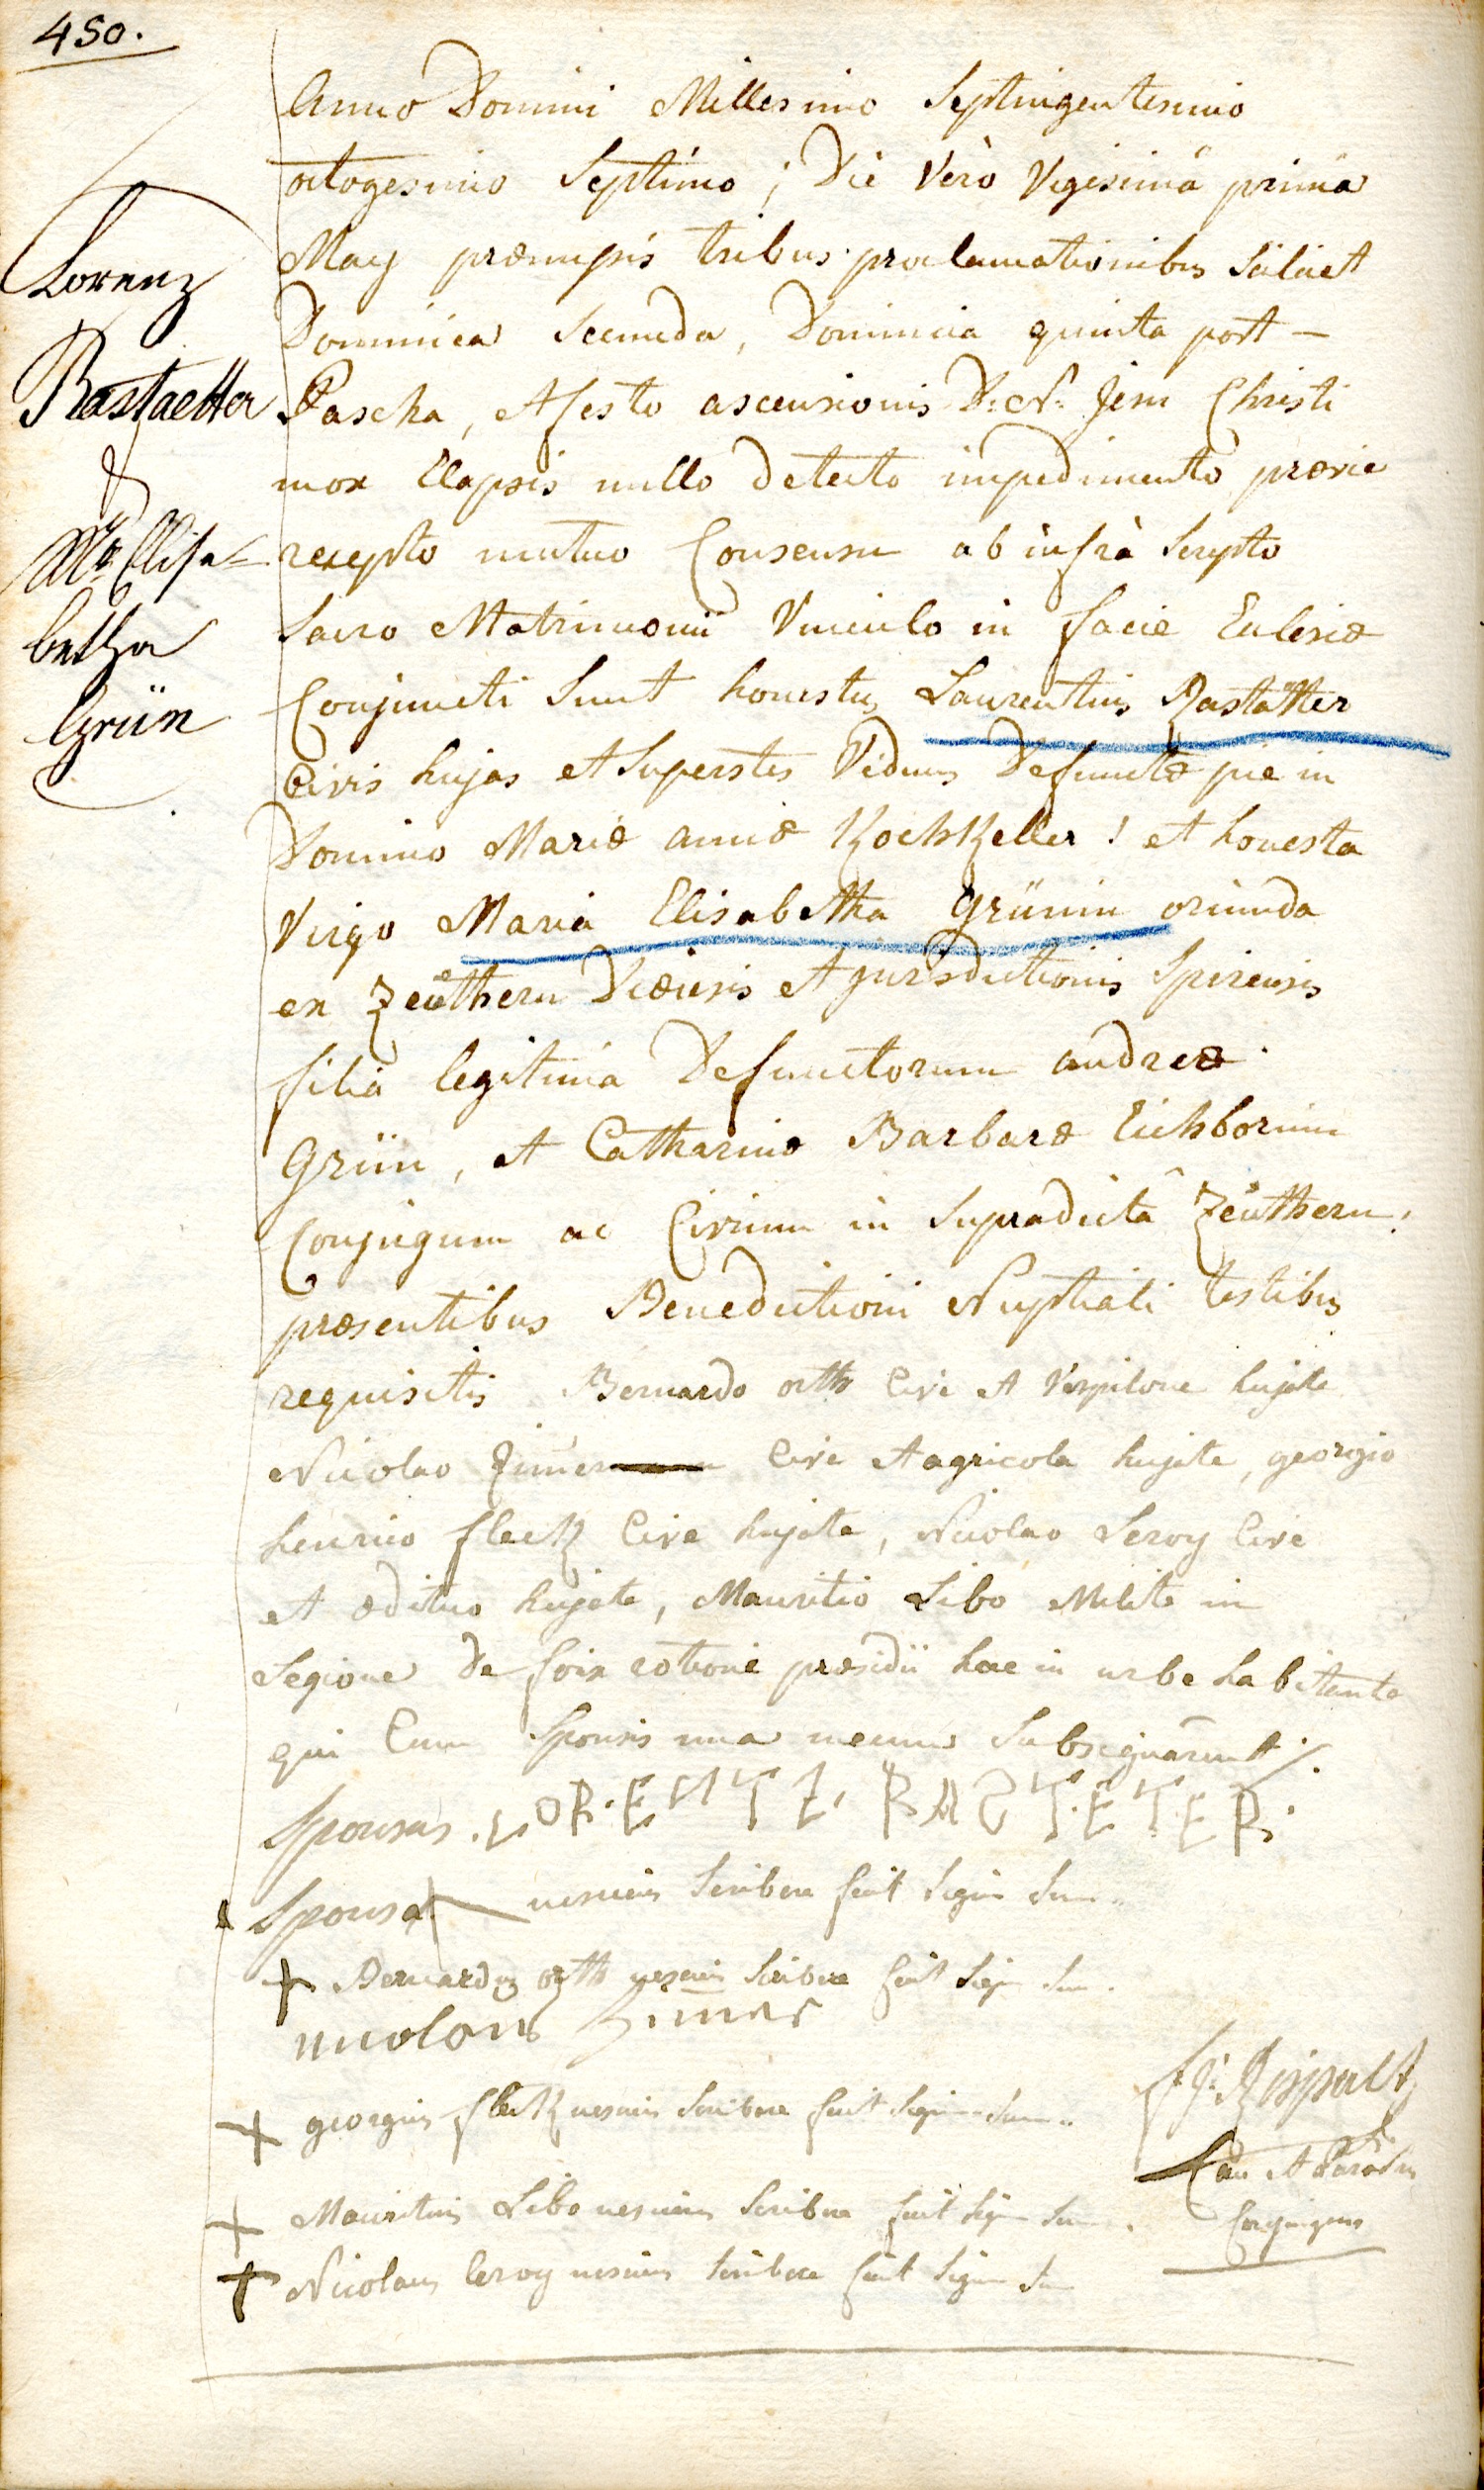 450.
Lorenz
Rastaetter
&
Ma Elisa=
betha
Grün
Anno Domini Millesimo Septingentesimo
octogesimo Septimo ; Die Vero Vigesimâ primâ
May præmissis tribus proclamationibus Scilicet
Dominica Secunda, Dominica quinta post –
Pascha, et festo ascensionis D: N: Jesu Christi
mox Elapsis nullo detecto impedimento prævie
recepto mutuo Consensu ab infrà Scripto
Sacro Matrimonii Vinculo in facie Eclesiæ
Conjuncti Sunt honestus Laurentius Rastätter
Civis hujas et Superstes Viduus Defunctæ pie in
Domino Mariæ annæ Kochkeller ! et honesta
Virgo Maria Elisabetha Grünin oriunda
ex Zeüthern Diœcesis et jurisdictionis Spirensis
filia legitima Defunctorum andreæ
Grün, et Catharinæ Barbaræ Eichbornin
Conjugum ac Civium in Supradictâ Zeüthern.
præsentibus Benedictioni Nuptiali testibus
requisitis Bernardo orth Cive et Vespilone hujate
Nicolao Zimer Cive et agricola hujate, georgio
henrico fleck Cive hujate, Nicolao Leroy Cive
et ædituo hujate, Mauritio Libo Milite in
Legione de foix ratione præsidii hac in urbe habitante
qui Cum Sponsis una mecum Subsignârunt ./.
Sponsus . LORENTZ RASTETER.
Sponsa nesciens Scribere fecit Signum Suum
+ Bernardus orth nesciens Scribere fecit Sig Suum.
nicolaus Zimer
+ georgius fleck nesciens Scribere fecit Signum Suum
+ Mauritius Libo nesciens Scribere fecit Sig Suum.
+ Nicolaus leroy nesciens Scribere fecit Signum Suum
Can et